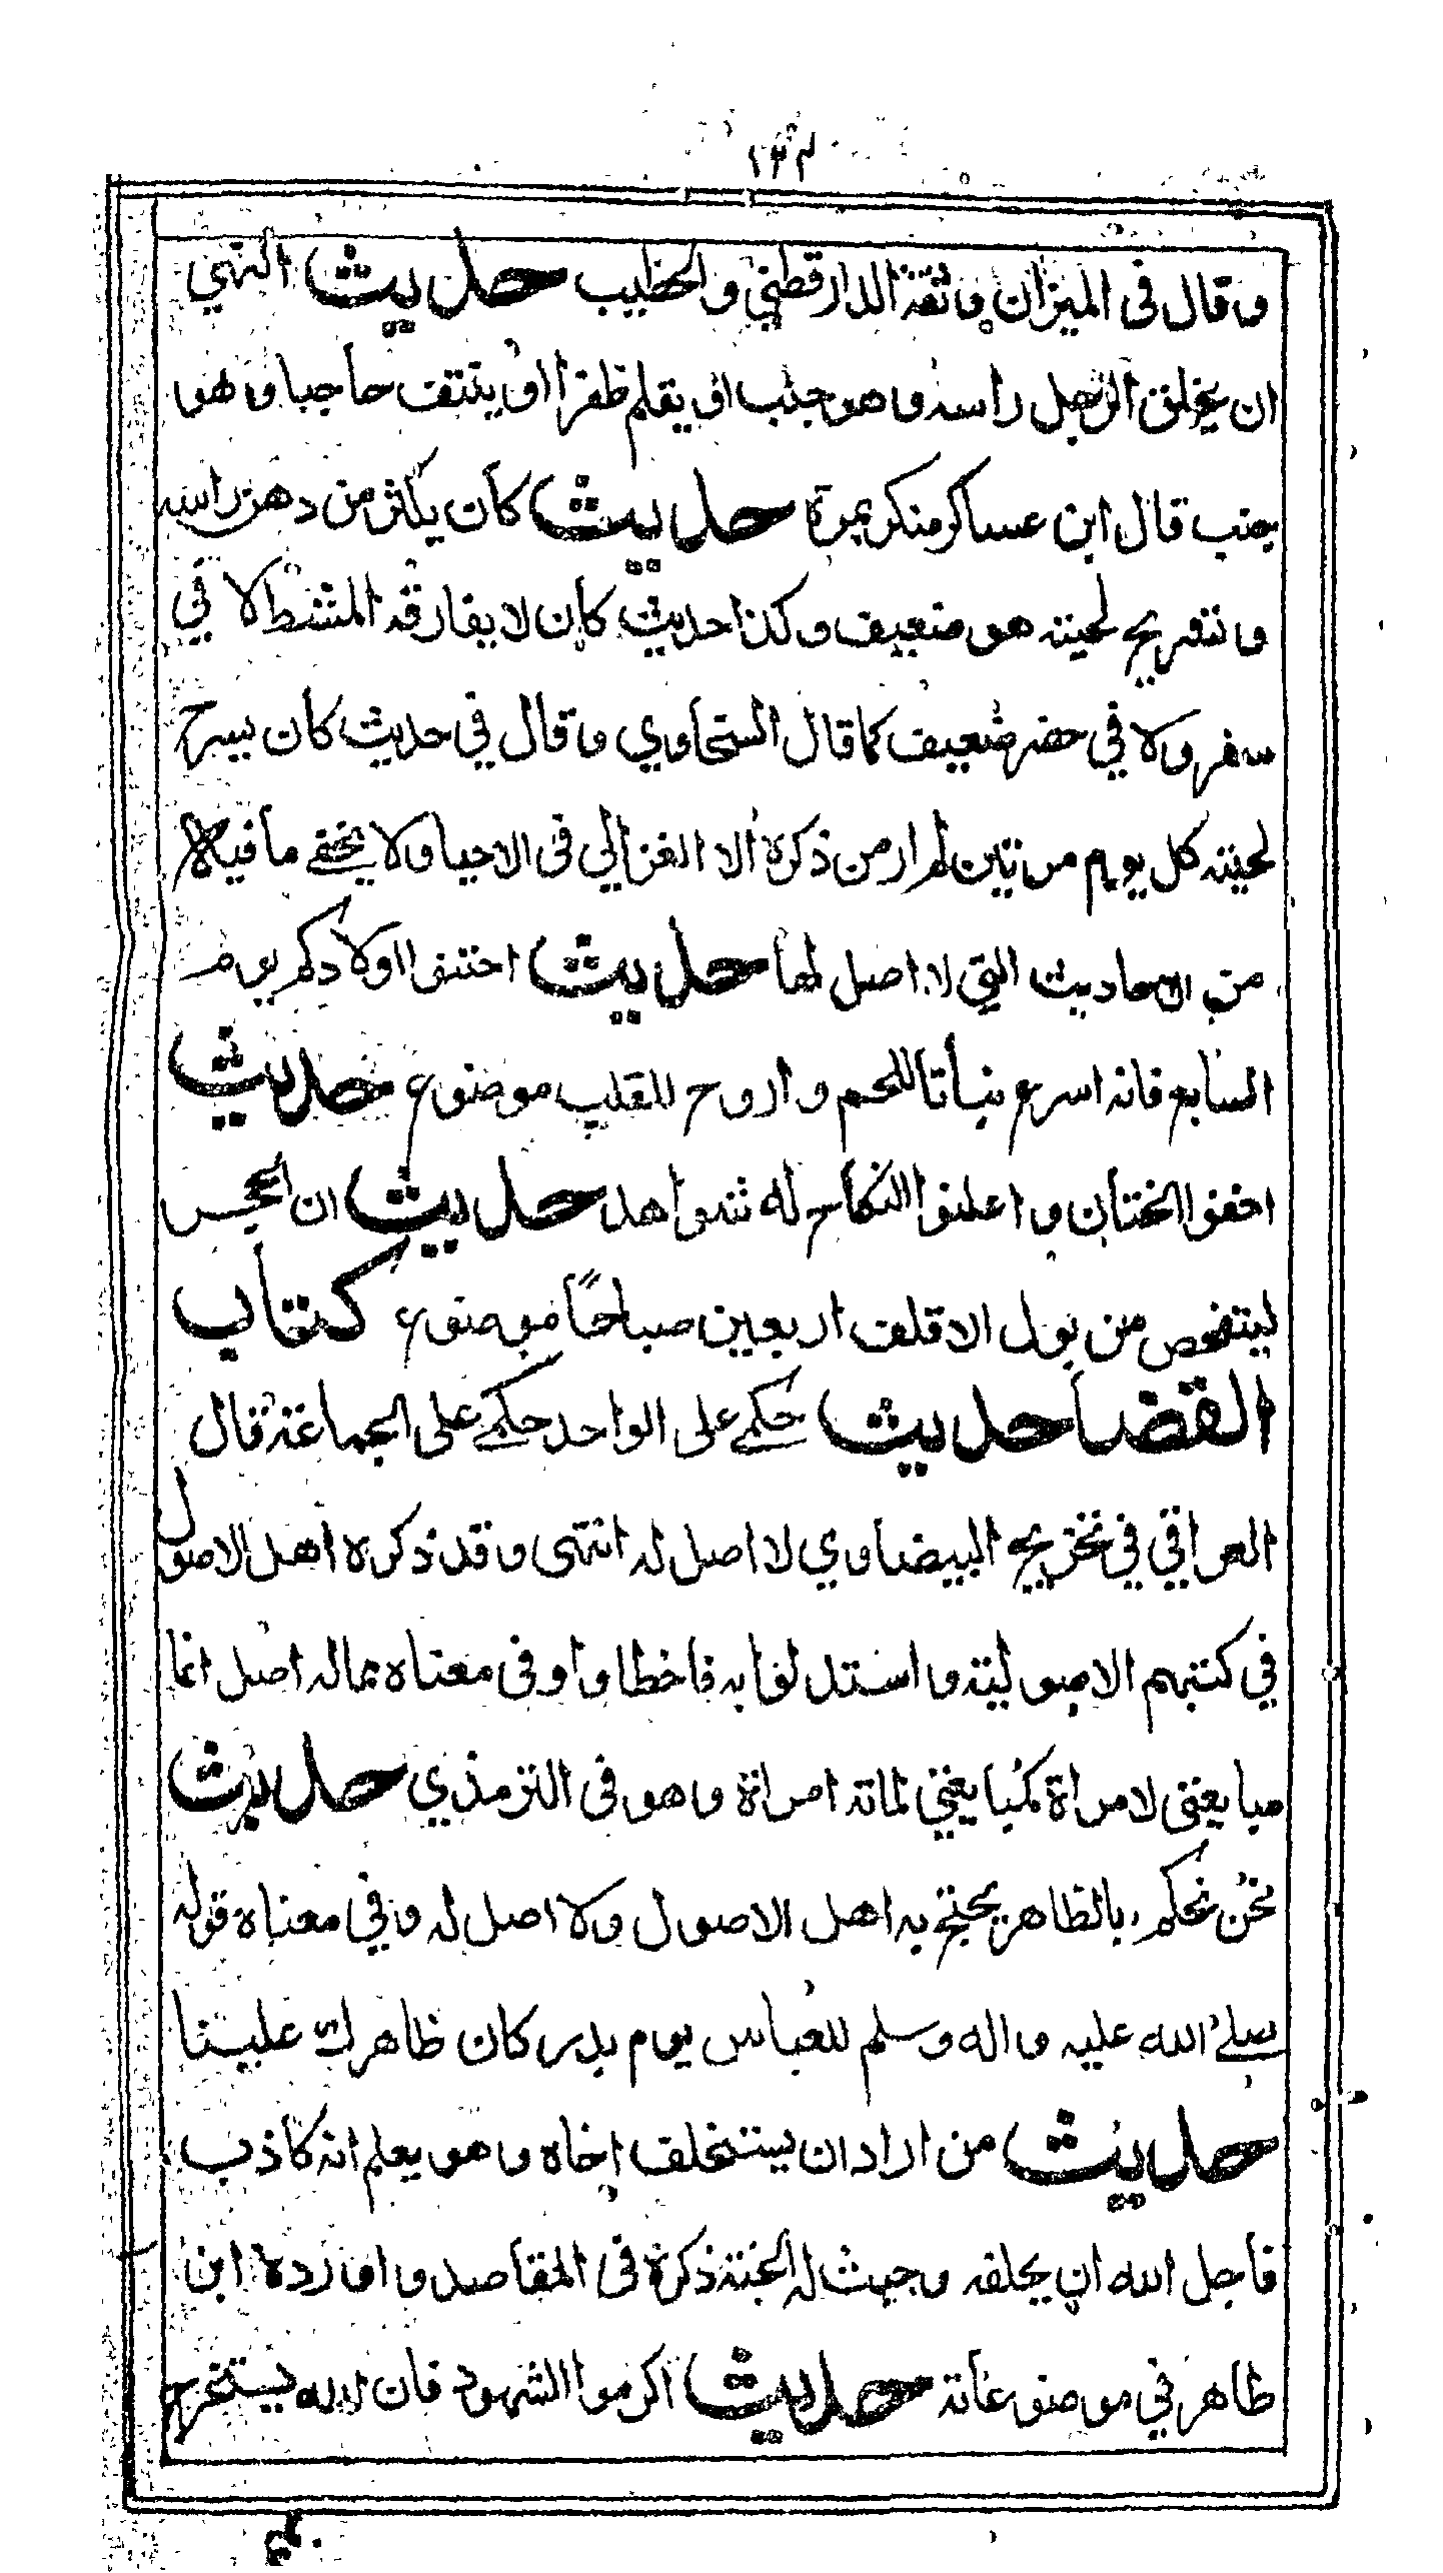 ١٣٢
وقال فى الميزان وثقه الدارقطني والخطيب حديث النهي
ان يحلق الرجل راسه وهو جنب او يقلم ظفرا او ينتف حاجبا وهو
جنب قال ابن عساكر منكر بمرة حديث كان يكثر من دهن راسه
وتسريح لحيته هو ضعيف وكذا حديث كان لا يفارقه المشط لا في
سفر ولا في حضر ضعيف كما قال السخاوي وقال في حديث كان يسرح
لحيته كل يوم مرتين لم ار من ذكره الا الغزالي فى الاحيا ولا يخفے ما فيه
من الاحاديث التي لا اصل لها حديث اختنوا اولادكم يوم
السابع فانه اسرع نباتا للحم واروح للقلب موضوع حديث
اخفوا الختان واعلنوا النكاح له شواهد حديث ان الحجر
ليتنجس من بول الاقلف اربعين صباحاً موضوع كتاب
القضا حديث حكمے على الواحد حكمے على الجماعة قال
العراقي في تخريج البيضاوي لا اصل له انتهى وقد ذكره اهل الاصول
في كتبهم الاصولية واستدلوا به فاخطاوا وفى معناه مما له اصل انما
مبايعتى لامراة كمبايعتي لماتة امراة وهو فى الترمذي حديث
نحن نحكم بالظاهر يحتج به اهل الاصول ولا اصل له وفي معناه قوله
صلے الله عليه واله وسلم للعباس يوم بدر كان ظاهرك علينا
حديث من اراد ان يستحلف اخاه وهو يعلم انه كاذب
فاجل الله ان يحلفه وجبت له الجنة ذكره فى المقاصد واورده ابن
طاهر في موضوعاته حديث اكرموا الشهود فان الله يستخرج